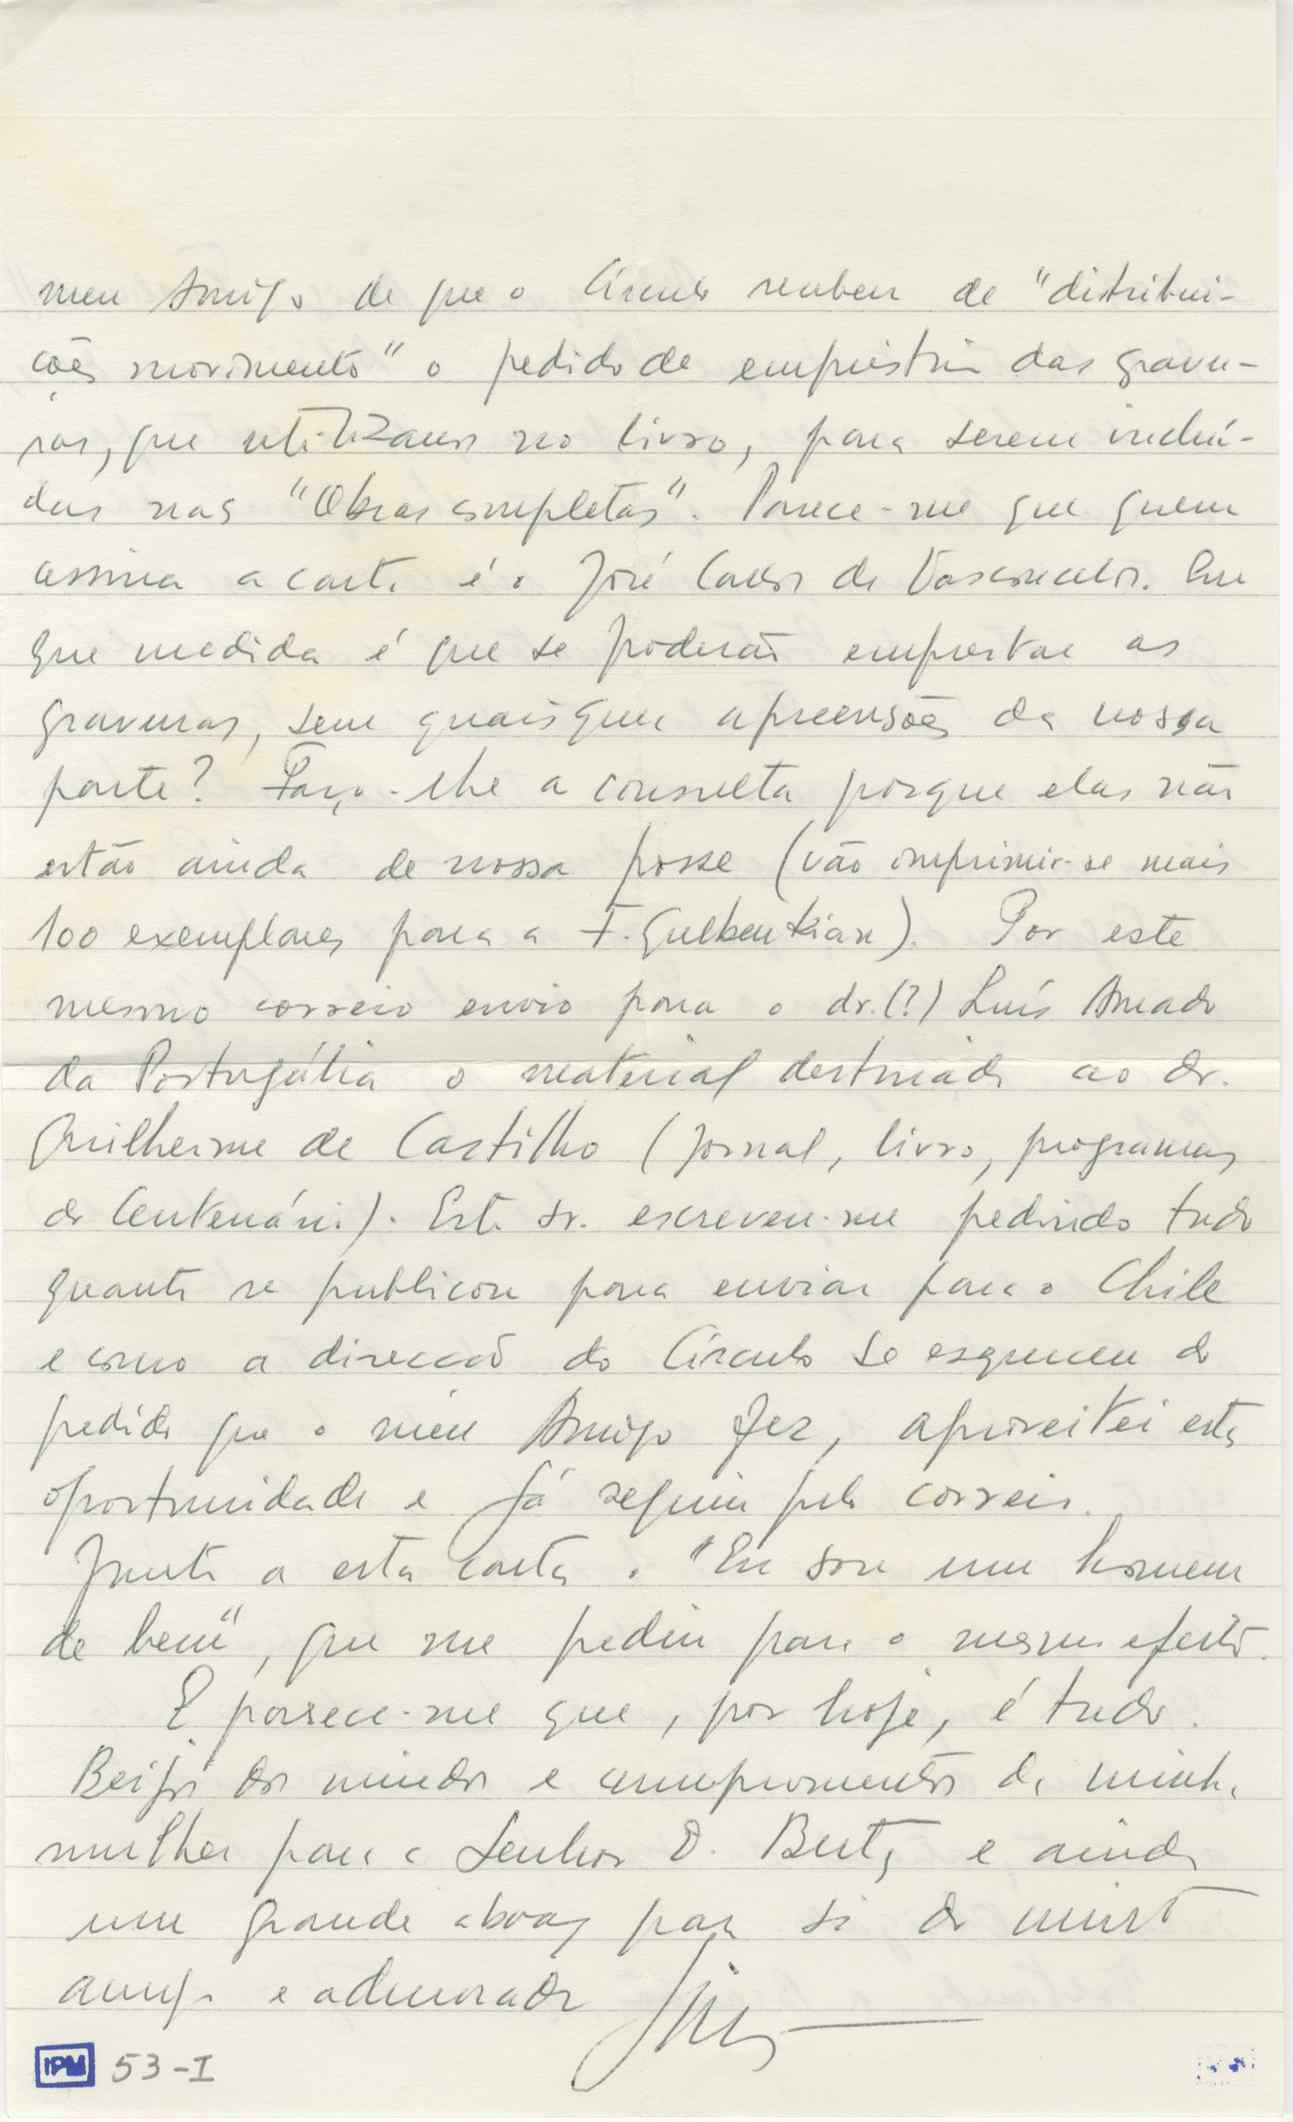 meu Amigo de que o Círculo recebeu de "distribui-
ções movimento" o pedido de empréstimo das gravu-
ras, que utilizamos no livro, para serem incluí-
das nas "Obras completas". Parece-me que quem
assina a carta é o José Carlos de Vasconcelos. Em
que medida é que se poderão emprestar as
gravuras, sem quaisquer apreensões da nossa
parte? Faço-lhe a consulta porque elas não
estão ainda de nossa posse (vão imprimir-se mais
100 exemplares para a F. Gulbenkian). Por este
mesmo correio envio para o dr.(?) Luís Amado
da Portugália o material destinado ao dr.
Guilherme de Castilho (jornal, livro, programas
do Centenário). Este sr. escreveu-me pedindo tudo
quanto se publicou para enviar para o Chile
e como a direcção do Círculo se esqueceu do
pedido que o meu Amigo fez, aproveitei esta
oportunidade e já seguiu pelo correio.
Junto a esta carta o "Eu sou um homem
de bem", que me pediu para o mesmo efeito.
E parece-me que, por hoje, é tudo.
Beijos dos miudos e cumprimentos de minha
mulher para a Senhora D. Berta e ainda
um grande abraço para si do muito
amigo e admirador
IPM 53-I